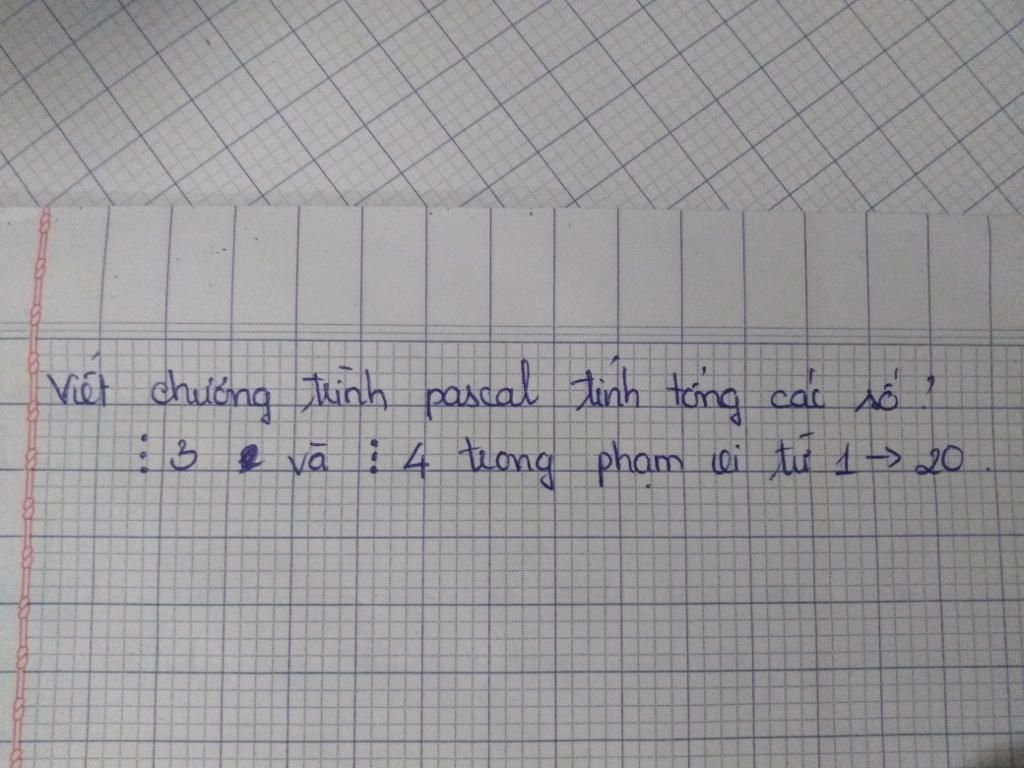 Viết chương trình pascal tính tổng các số?
⋮ 3 và ⋮ 4 trong phạm vi từ 1 → 20.